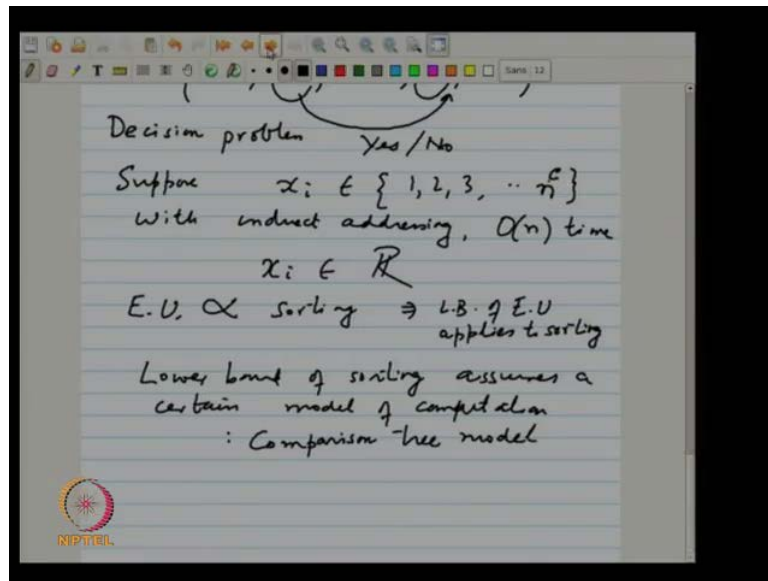 Sans 12
Decision problem Yes/No
Suppose xᵢ ∈ { 1, 2, 3, ·· nᶜ }
with indirect addressing, O(n) time
xᵢ ∈ ℝ
E.U. ∝ sorting ⇒ L.B. of E.U
applies to sorting
Lower bound of sorting assumes a
certain model of computation
: Comparison tree model
NPTEL